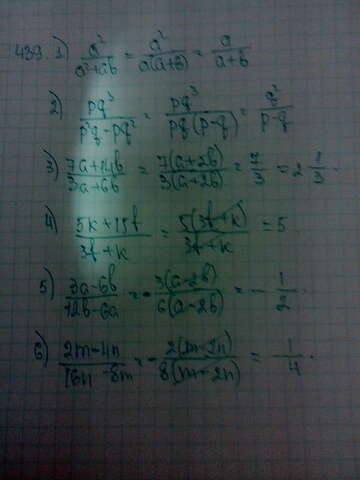 439. 1) a²/(a²+ab) = a²/(a(a+b)) = a/(a+b)
2) pq³/(p²q-pq²) = pq³/(pq(p-q)) = q²/(p-q)
3) (7a+14b)/(3a+6b) = 7(a+2b)/(3(a+2b)) = 7/3 = 2 1/3.
4) (5k+15t)/(3t+k) = 5(3t+k)/(3t+k) = 5
5) (3a-6b)/(12b-6a) = -3(a-2b)/(6(a-2b)) = -1/2.
6) (2m-4n)/(16n-8m) = -2(m-2n)/(8(m-2n)) = -1/4.